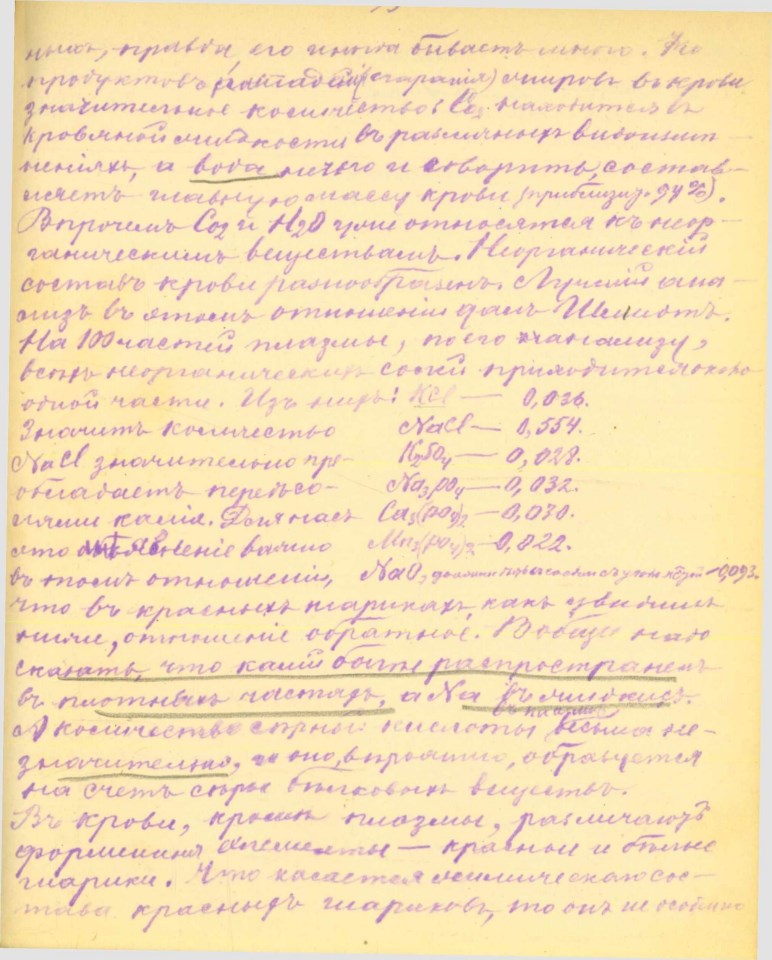 ныхъ, правда, его иногда бываетъ много. Изъ
продуктовъ распаденія (сгаранія) жировъ въ крови
значительное количество: CO₂ находится въ
кровяной жидкости въ различныхъ видоизмѣ-
неніяхъ, а вода, нечего и говорить, состав-
ляетъ главную массу крови (приблиз. 94%).
Впрочемъ CO₂ и H₂O уже относятся къ неор-
ганическимъ веществамъ. Неорганическій
составъ крови разнообразенъ. Лучшій ана-
лизъ въ этомъ отношеніи далъ Шмидтъ.
На 100 частей плазмы, по его анализу,
всѣхъ неорганическихъ солей приходится около
одной части. Изъ нихъ: KCl — 0,036.
Значитъ количество NaCl — 0,554.
NaCl значительно пре- K₂SO₄ — 0,028.
обладаетъ передъ со- Na₃PO₄ — 0,032.
лями калія. Для насъ Ca₃(PO₄)₂ — 0,030.
это явленіе важно Mn₃(PO₄)₂ — 0,022.
въ томъ отношеніи, NaO, — 0,093.
что въ красныхъ шарикахъ, какъ увидимъ
ниже, отношеніе обратное. Вообще надо
сказать, что калій болѣе распространенъ
въ плотныхъ частяхъ, а Na въ жидкихъ.
въ плазмѣ
А количество сѣрной кислоты весьма не-
значительно, но, вѣроятно, образуется
на счетъ сѣры бѣлковыхъ веществъ.
Въ крови, кромѣ плазмы, различаютъ
форменные элементы — красные и бѣлые
шарики. Что касается химическаго сос-
тава красныхъ шариковъ, то онъ не особенно